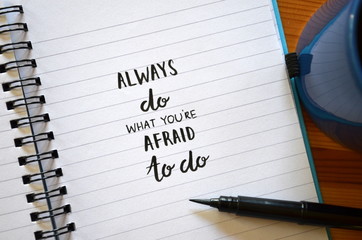 ALWAYS
do
WHAT YOU'RE
AFRAID
to do